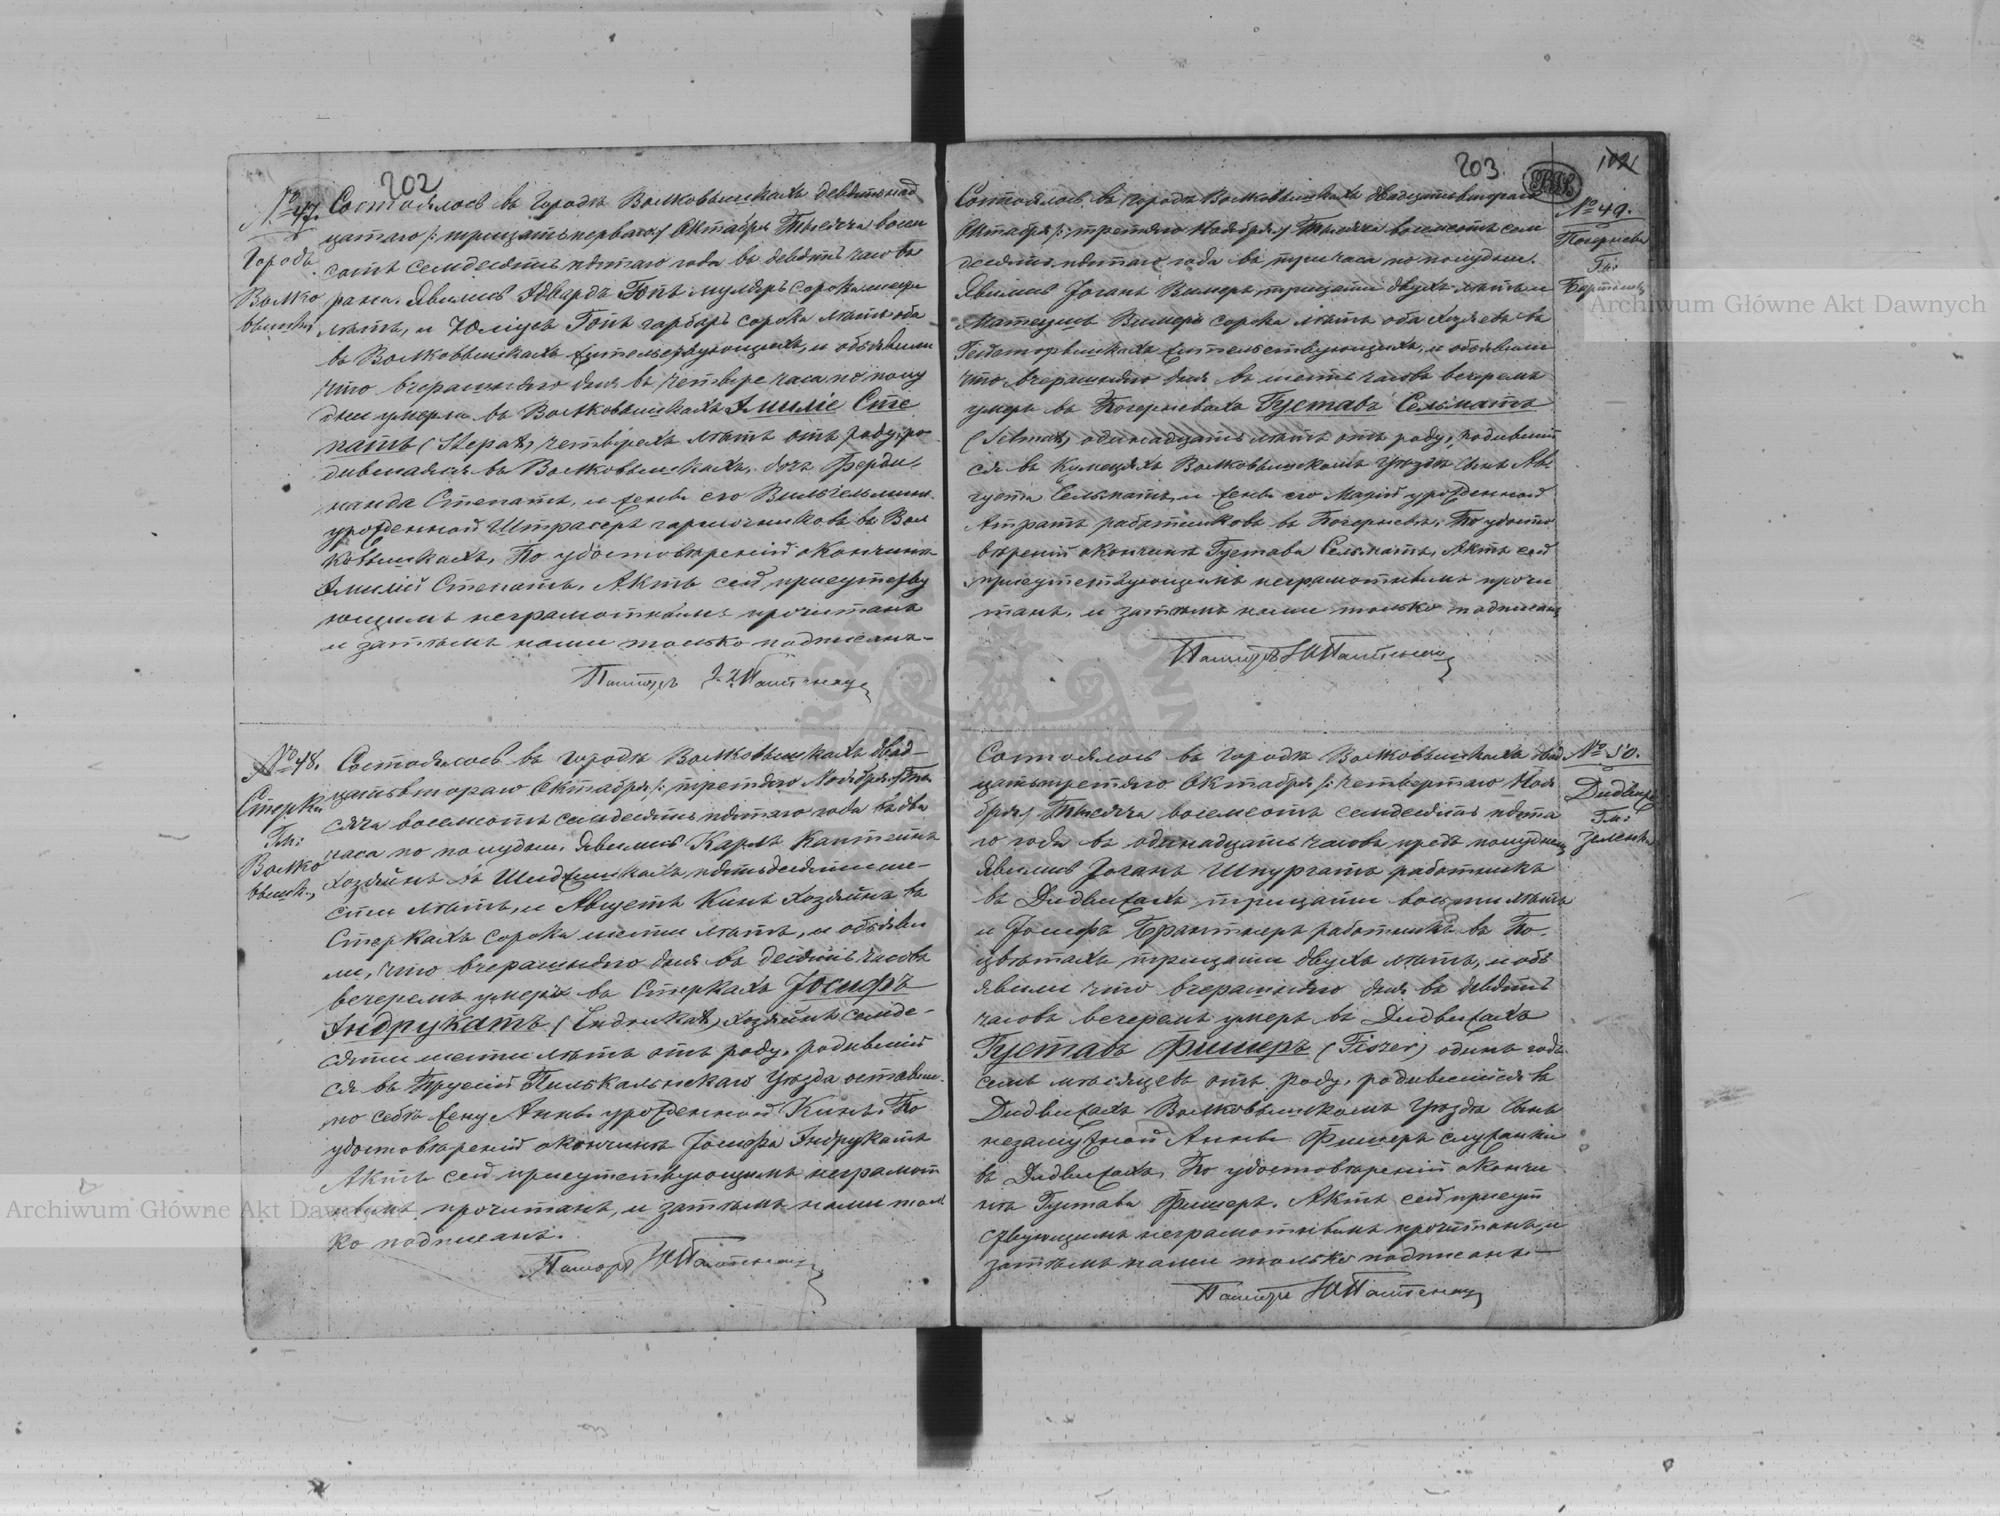 202
№ 47.
Городъ
Волко
вышки
Состоялось въ городѣ Волковышкахъ девятнад
цатаго /: тридцатьперваго:/ Октября Тысяча восем
сотъ семдесятъ пятаго года въ девять часовъ
рана. Явились Эдвардъ Гопъ мулдеръ сорока шести
лѣтъ, и Юліусъ Гопъ гарбаръ сорока лѣтъ оба
въ Волковышкахъ жительствующихъ, и объявили
что вчерашняго дня въ четыре часа по полу
дни умерла въ Волковышкахъ Эмилія Сте
патъ (Stepat) четырехъ лѣтъ отъ роду, ро
дившаяся въ Волковышкахъ, дочь Ферди,
нанда Степатъ, и жены его Вильгельмины
урожденной Штрасеръ горшечниковъ въ Вол
ковышкахъ, По удостовѣреніи о кончинѣ
Эмиліи Степатъ, Актъ сей присутству
ющимъ неграмотнымъ прочитанъ
и затѣмъ нами только подписанъ.
Пасторъ
№ 48.
Стерки
Гм:
Волко
вышк.
Состоялось въ городѣ Волковышкахъ двад
цатьвтораго Октября /: третяго Ноября:/ Ты
сяча восемсотъ семдесятъ пятаго года въ два
часа по полудни, Явились Карлъ Кантеинъ
хозяинъ въ пятьдесятъ ше
сти лѣтъ, и Августъ Кинъ хозяинъ въ
Стеркахъ сорока шести лѣтъ, и объяви
ли, что вчерашняго дня въ десять часовъ
вечеромъ умеръ въ Стеркахъ Іосифъ
Индрукатъ (Indrukat) хозяинъ семде
сяти шести лѣтъ отъ роду, родившій
ся въ Прусіи Пилькальнскаго уѣзда оставив.
по себѣ жену Анны урожденной Кинъ. По
удостовѣреніи о кончинѣ Іосифа Индрукатъ
Актъ сей присутствующимъ неграмот
нымъ прочитанъ, и затѣмъ нами толь
ко подписанъ.
Пасторъ
203.
102
№ 49.
Погерневы
Гм:
Состоялось въ городѣ Волковышкахъ двадцатьвтораго
Октября /: третяго Ноября:/ Тысяча восемсотъ сем
десятъ пятаго года въ три часа по полудни.
Явились Іоганъ Вилеръ тридцати двухъ лѣтъ и
Матеушъ Вилеръ сорока лѣтъ оба хозяевъ въ
жительствующихъ, и объявили
что вчерашняго дня въ шесть часовъ вечеромъ
умеръ въ Погерневахъ Густавъ Сельматъ
(Selmat) одинадцать лѣтъ отъ роду, родившій
ся въ Волковышскомъ уѣздѣ сынъ Ав
густа Сельматъ, и жены его Маріи урожденной
Атратъ работниковъ въ Погерневѣ, По удосто
вѣреніи о кончинѣ Густава Сельматъ, Актъ сей
присутствующимъ неграмотнымъ прочи
танъ, и затѣмъ нами только подписанъ
Пасторъ
№ 50.
Дидвиже
Гм:
Зеленка
Состоялось въ городѣ Волковышкахъ двад
цатьтретяго Октября /: четвертаго Ноя
бря:/ Тысяча восемсотъ семдесятъ пята
го года въ одинадцать часовъ предъ полуднемъ
Явились Іоганъ Шпургатъ работникъ
въ Дидвижахъ тридцати восьми лѣтъ
и Іосифъ Брантнеръ работникъ въ По
цвѣтахъ тридцати двухъ лѣтъ, и объ
явили что вчерашняго дня въ девять
часовъ вечеромъ умеръ въ Дидвижахъ
Густавъ Фишеръ (Fiszer) одинъ годъ
семь мѣсяцевъ отъ роду, родившійся въ
Дидвижахъ Волковышскомъ уѣздѣ сынъ
незамужной Анны Фишеръ служанки
въ Дидвижахъ, По удостовѣреніи о кончи
нѣ Густава Фишеръ. Актъ сей присут
ствующимъ неграмотнымъ прочитанъ, и
затѣмъ нами только подписанъ.
Пасторъ
Archiwum Główne Akt Dawnych
Archiwum Główne Akt Dawnych